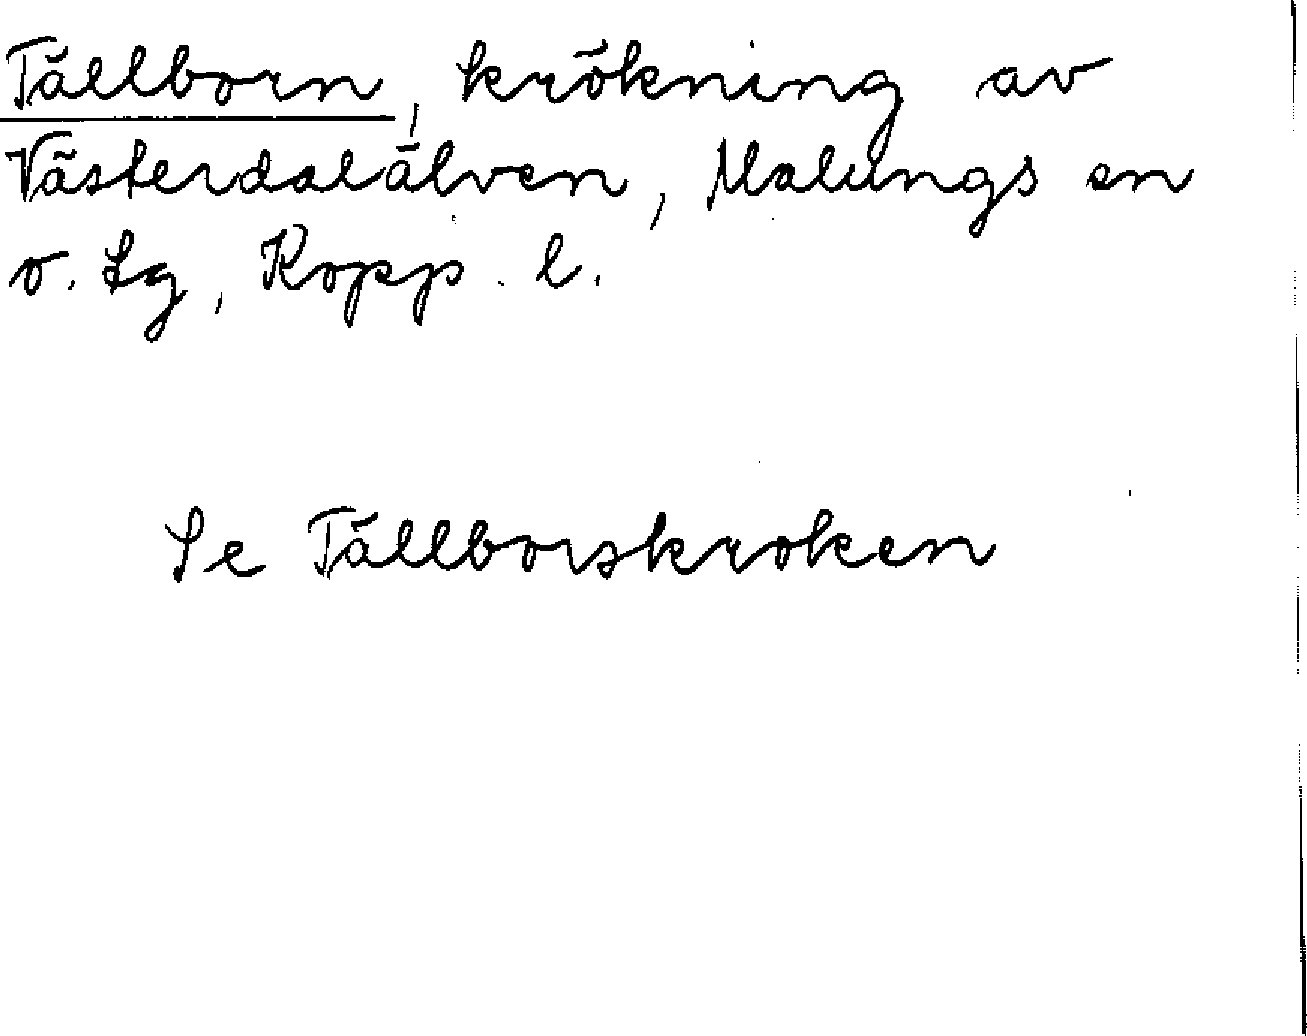 Tällborn, krökning av
Västerdalälven, Malungs sn
o. Lg, Kopp. l.
Se Tällborskroken